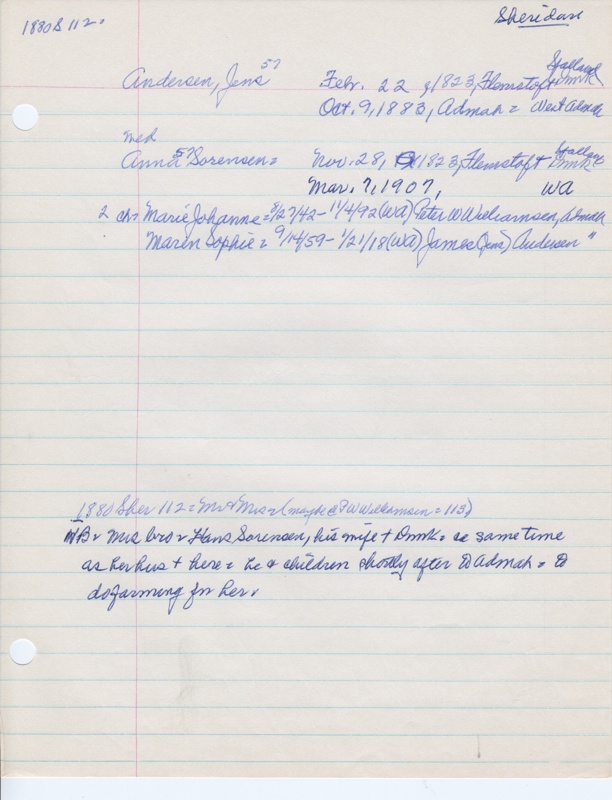 Sheridan
1880 S 112.
Andersen, Jens 57 Febr. 22, 1823, Flemstoft Sjalland Dnmk
Oct. 9, 1883, Admah = West Admah
med
Anna 57 Sorensen = Nov. 28, 1823, Flemstoft Sjalland Dnmk
Mar. 7, 1907, WA
2 ch = Marie Johanne = 8/27/42 - 11/4/92 (WA) Peter W Williamsen, Admah
Maren Sophie = 9/14/59 - 1/21/18 (WA) James (Jens) Andersen "
1880 Sher 112 = Mr & Mrs = (maybe @ P W Williamsen = 113)
NB. Mrs bro. Hans Sorensen, his wife + Dnmk = same time
as her hus + here = he & children shortly after to Admah = to
do farming for her.